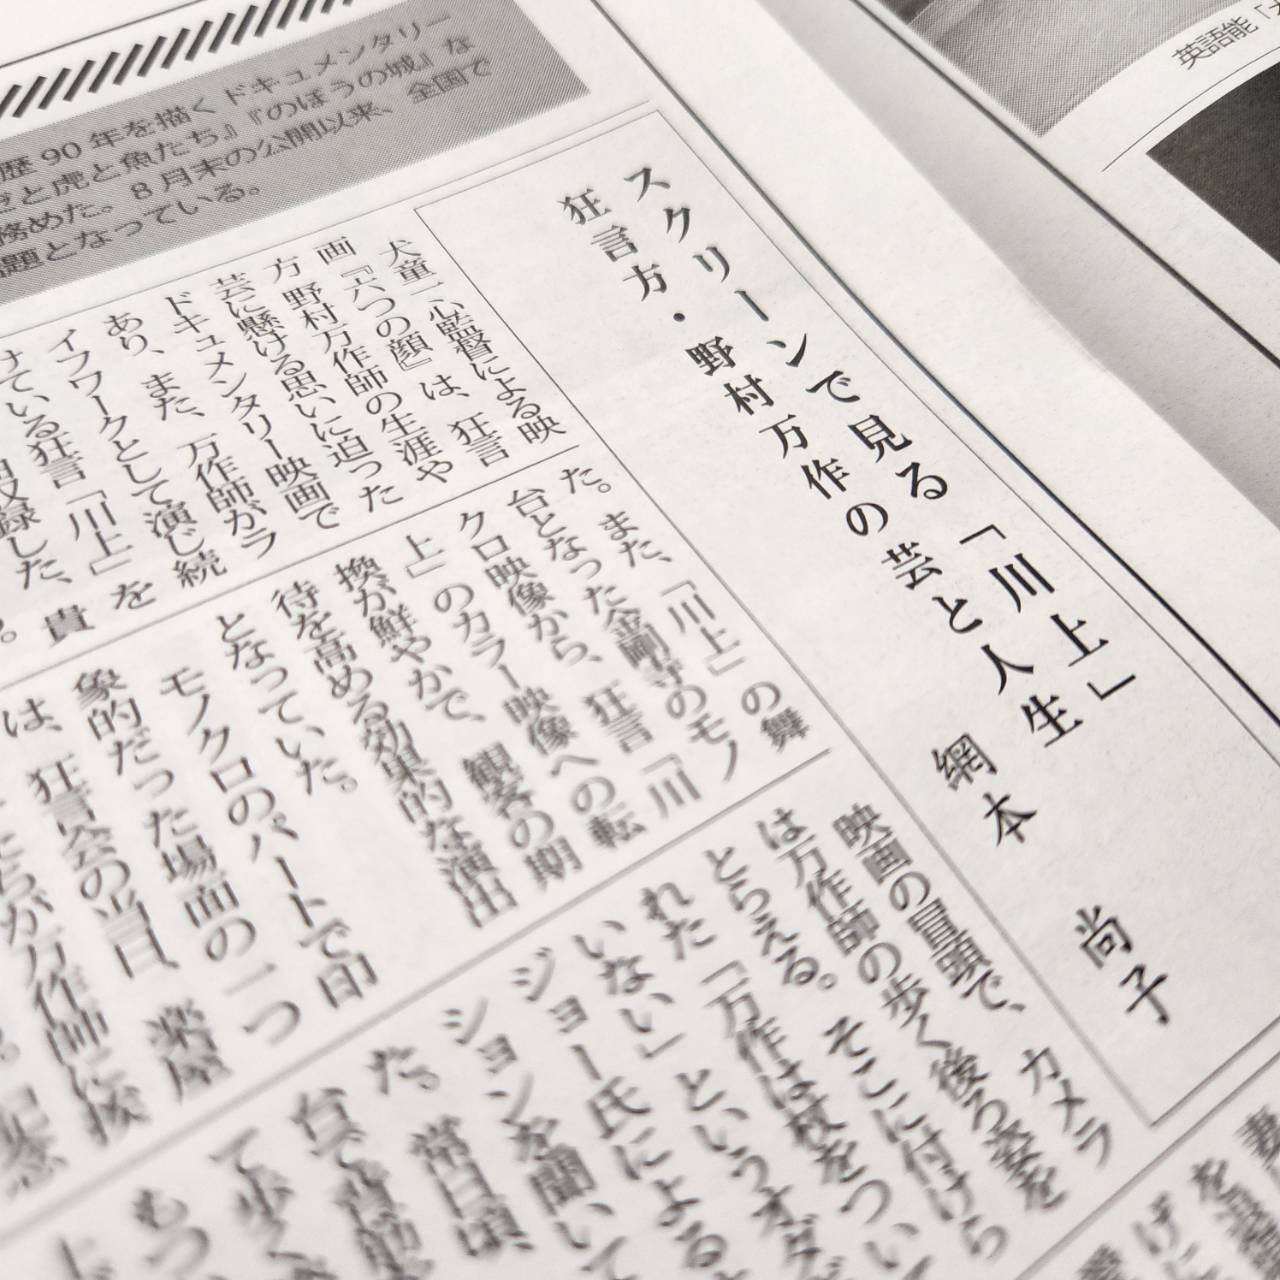 歴90年を描くドキュメンタリー
ぜと虎と魚たち』『のぼうの城』な
務めた。8月末の公開以来、全国で
題となっている。
英語能「
スクリーンで見る「川上」
狂言方・野村万作の芸と人生
網本 尚子
犬童一心監督による映
画『六つの顔』は、狂言
方 野村万作師の生涯や
芸に懸ける思いに迫った
ドキュメンタリー映画で
あり、また、万作師がラ
イフワークとして演じ続
けている狂言「川上」を
収録した、貴
た。また、「川上」の舞
台となった金剛寺のモノ
クロ映像から、狂言「川
上」のカラー映像への転
換が鮮やかで、観客の期
待を高める効果的な演出
となっていた。
モノクロのパートで印
象的だった場面の一つ
は、狂言会の当日、楽屋
たちが万作師に挨
映画の冒頭で、カメラ
は万作師の歩く後ろ姿を
とらえる。そこに付けら
れた「万作は杖をつい
いない」というオダ
ジョー氏による
ションを聞いて
た。常日頃、
台で背筋
て歩く
もつ
妻
を
げに